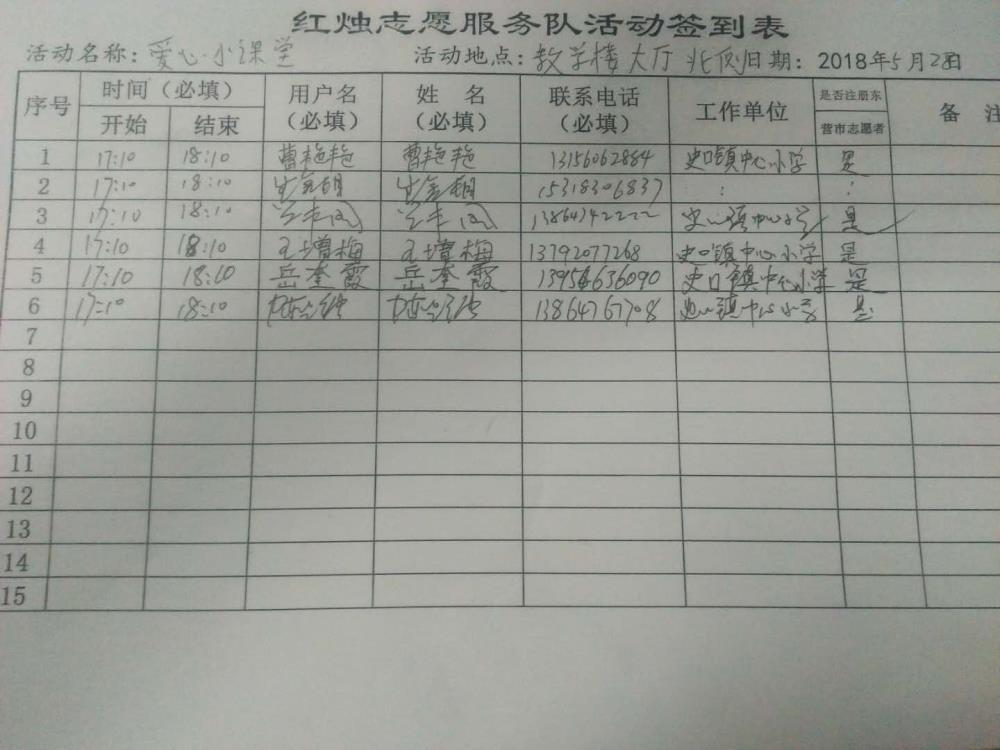 红烛志愿服务队活动签到表
活动名称：爱心小课堂 活动地点：教学楼大厅北侧 日期：2018年5月2日
序号 时间（必填） 用户名（必填） 姓名（必填） 联系电话（必填） 工作单位 是否注册东营市志愿者 备注
开始 结束
1 17:10 18:10 曹艳艳 曹艳艳 13156062884 史口镇中心小学 是
2 17:10 18:10 15318306837 : :
3 17:10 18:10 13864742222 史口镇中心小学 是
4 17:10 18:10 王增梅 王增梅 13792077268 史口镇中心小学 是
5 17:10 18:10 岳奎霞 岳奎霞 13954636090 史口镇中心小学 是
6 17:10 18:10 13864767708 史口镇中心小学 是
7
8
9
10
11
12
13
14
15